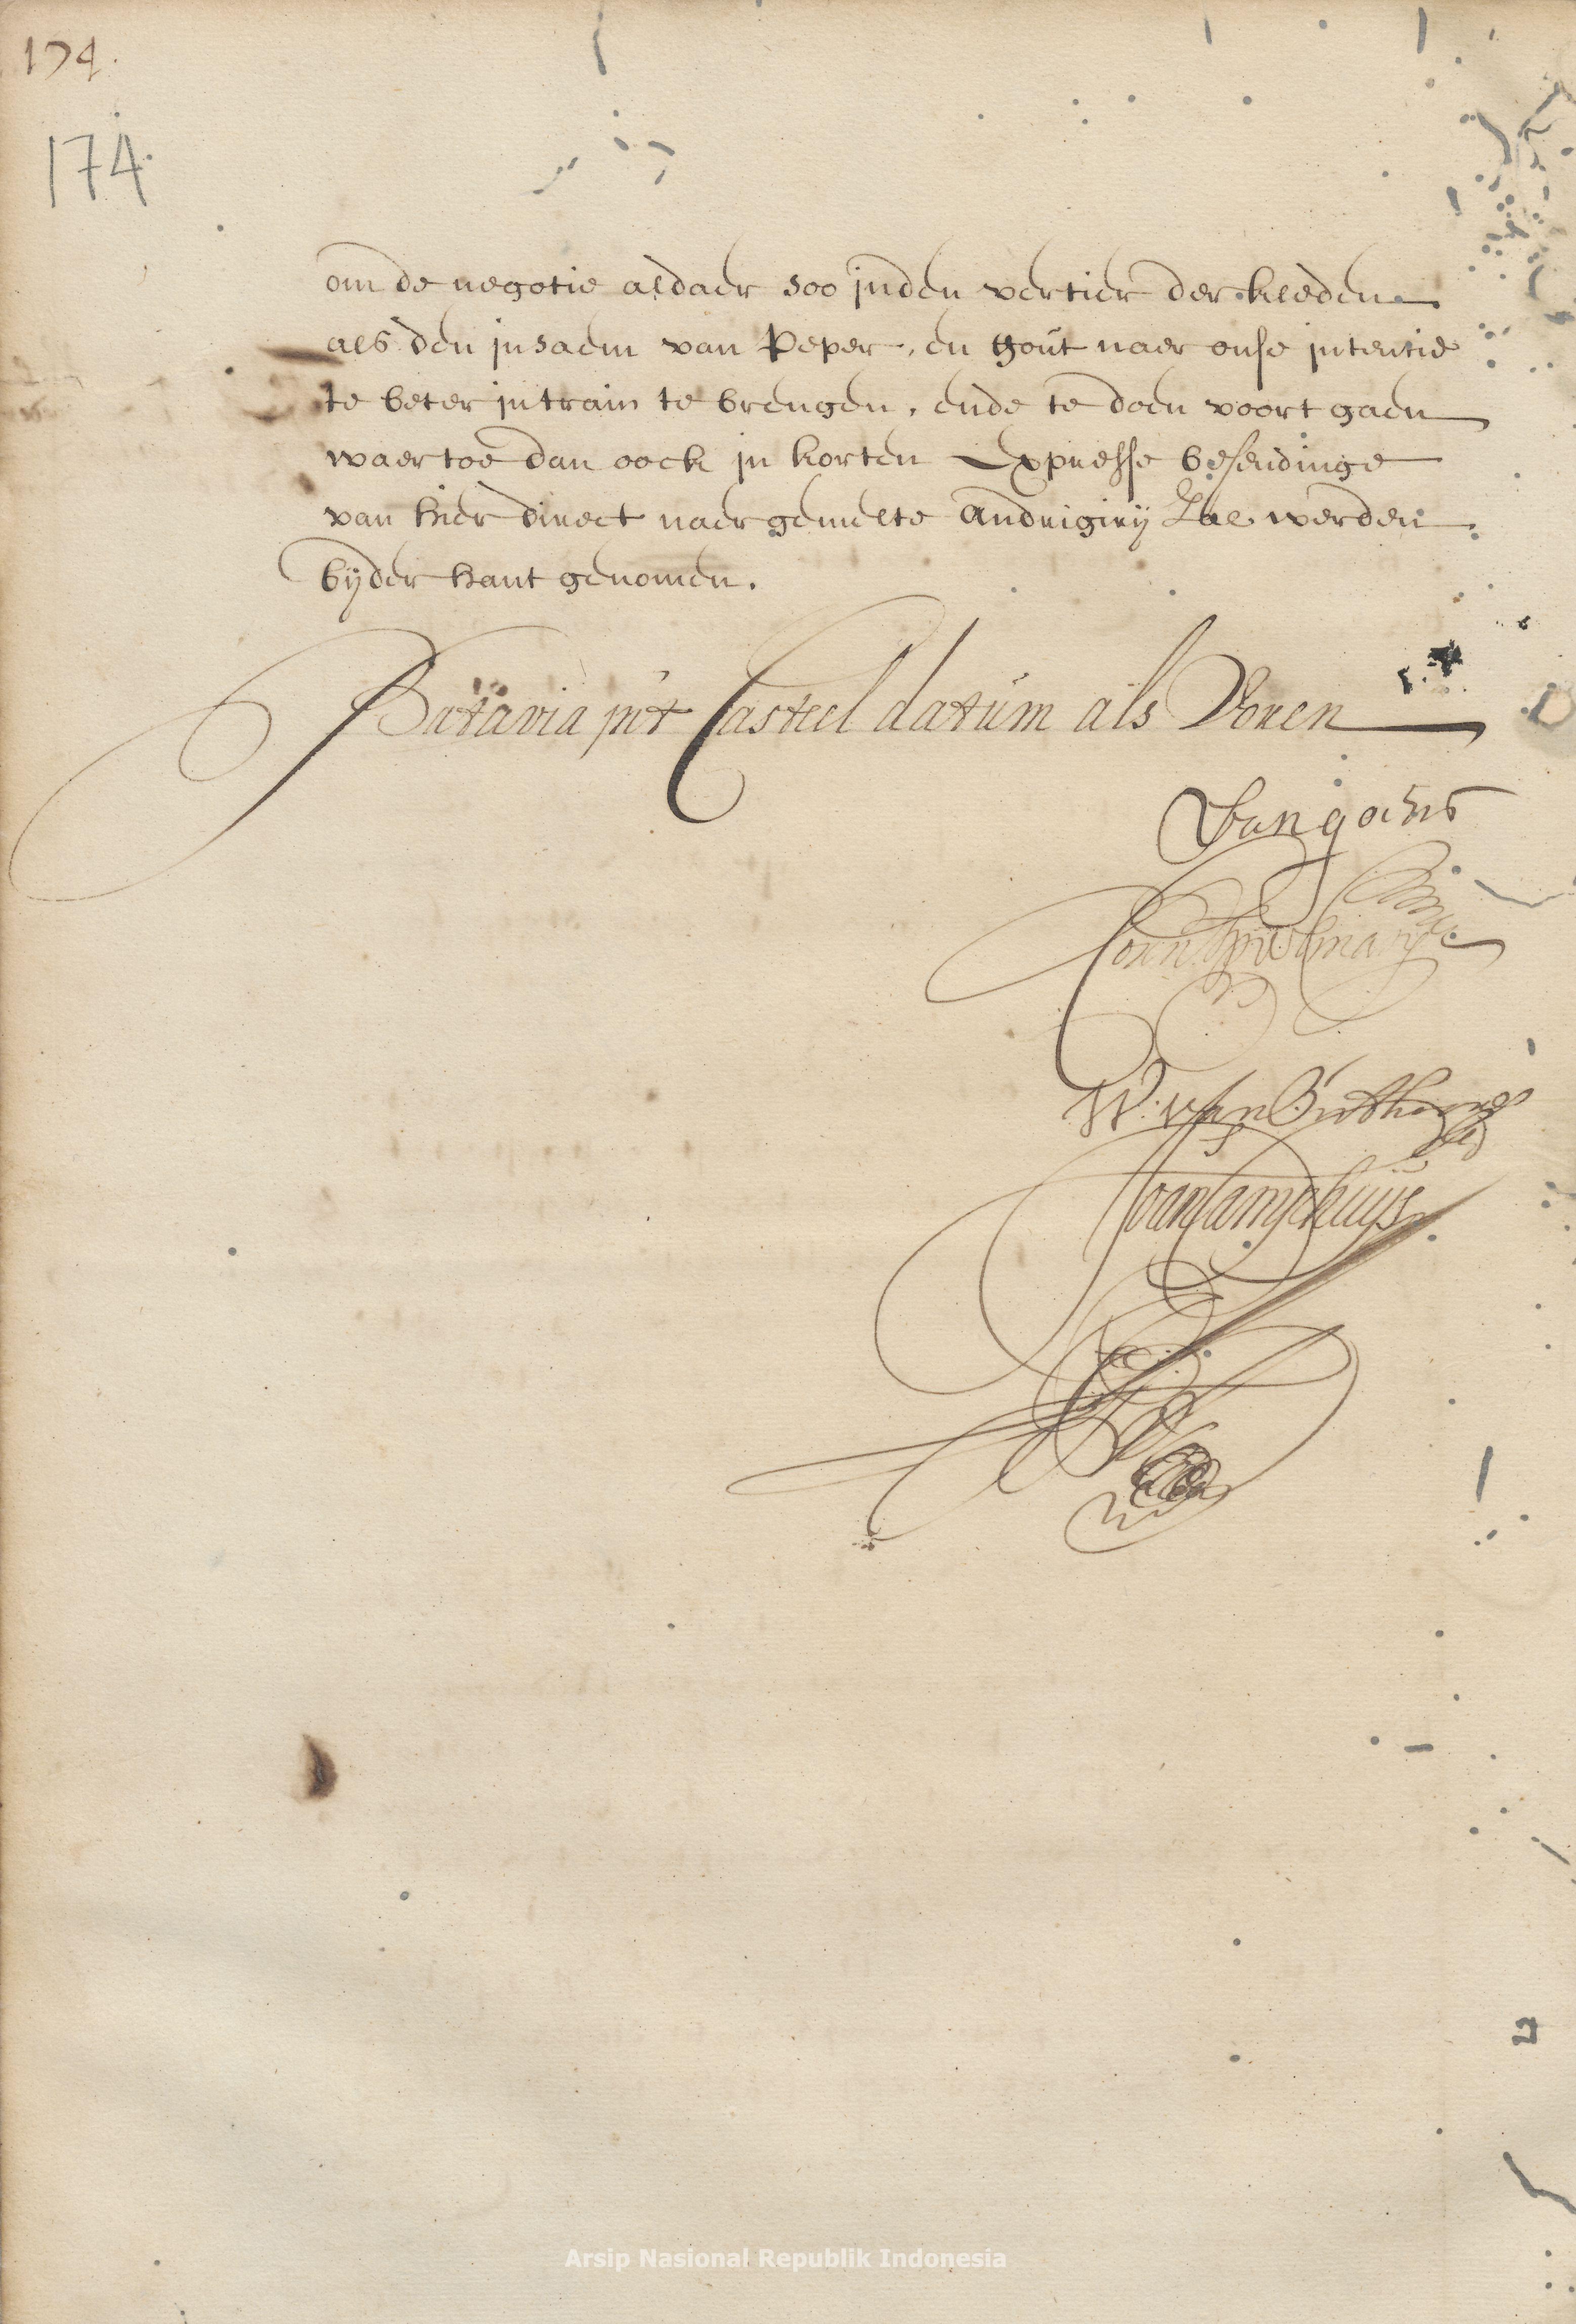 174.
174.
om de negotie aldaer soo inden vertier der kleeden
als den insaem van Peper, en gout naer onse intentie
te beter in train te brengen, ende te doen voort gaen
waertoe dan oock in korten Expresse besendinge
van hier direct naer gemelte Andrigirij Zal werden
bijder hant genomen.
Batavia int Casteel datum als Voren
Van goens
Corn. Speelman
W. van Outhoorn
Joan Camphuijs
Arsip Nasional Republik Indonesia